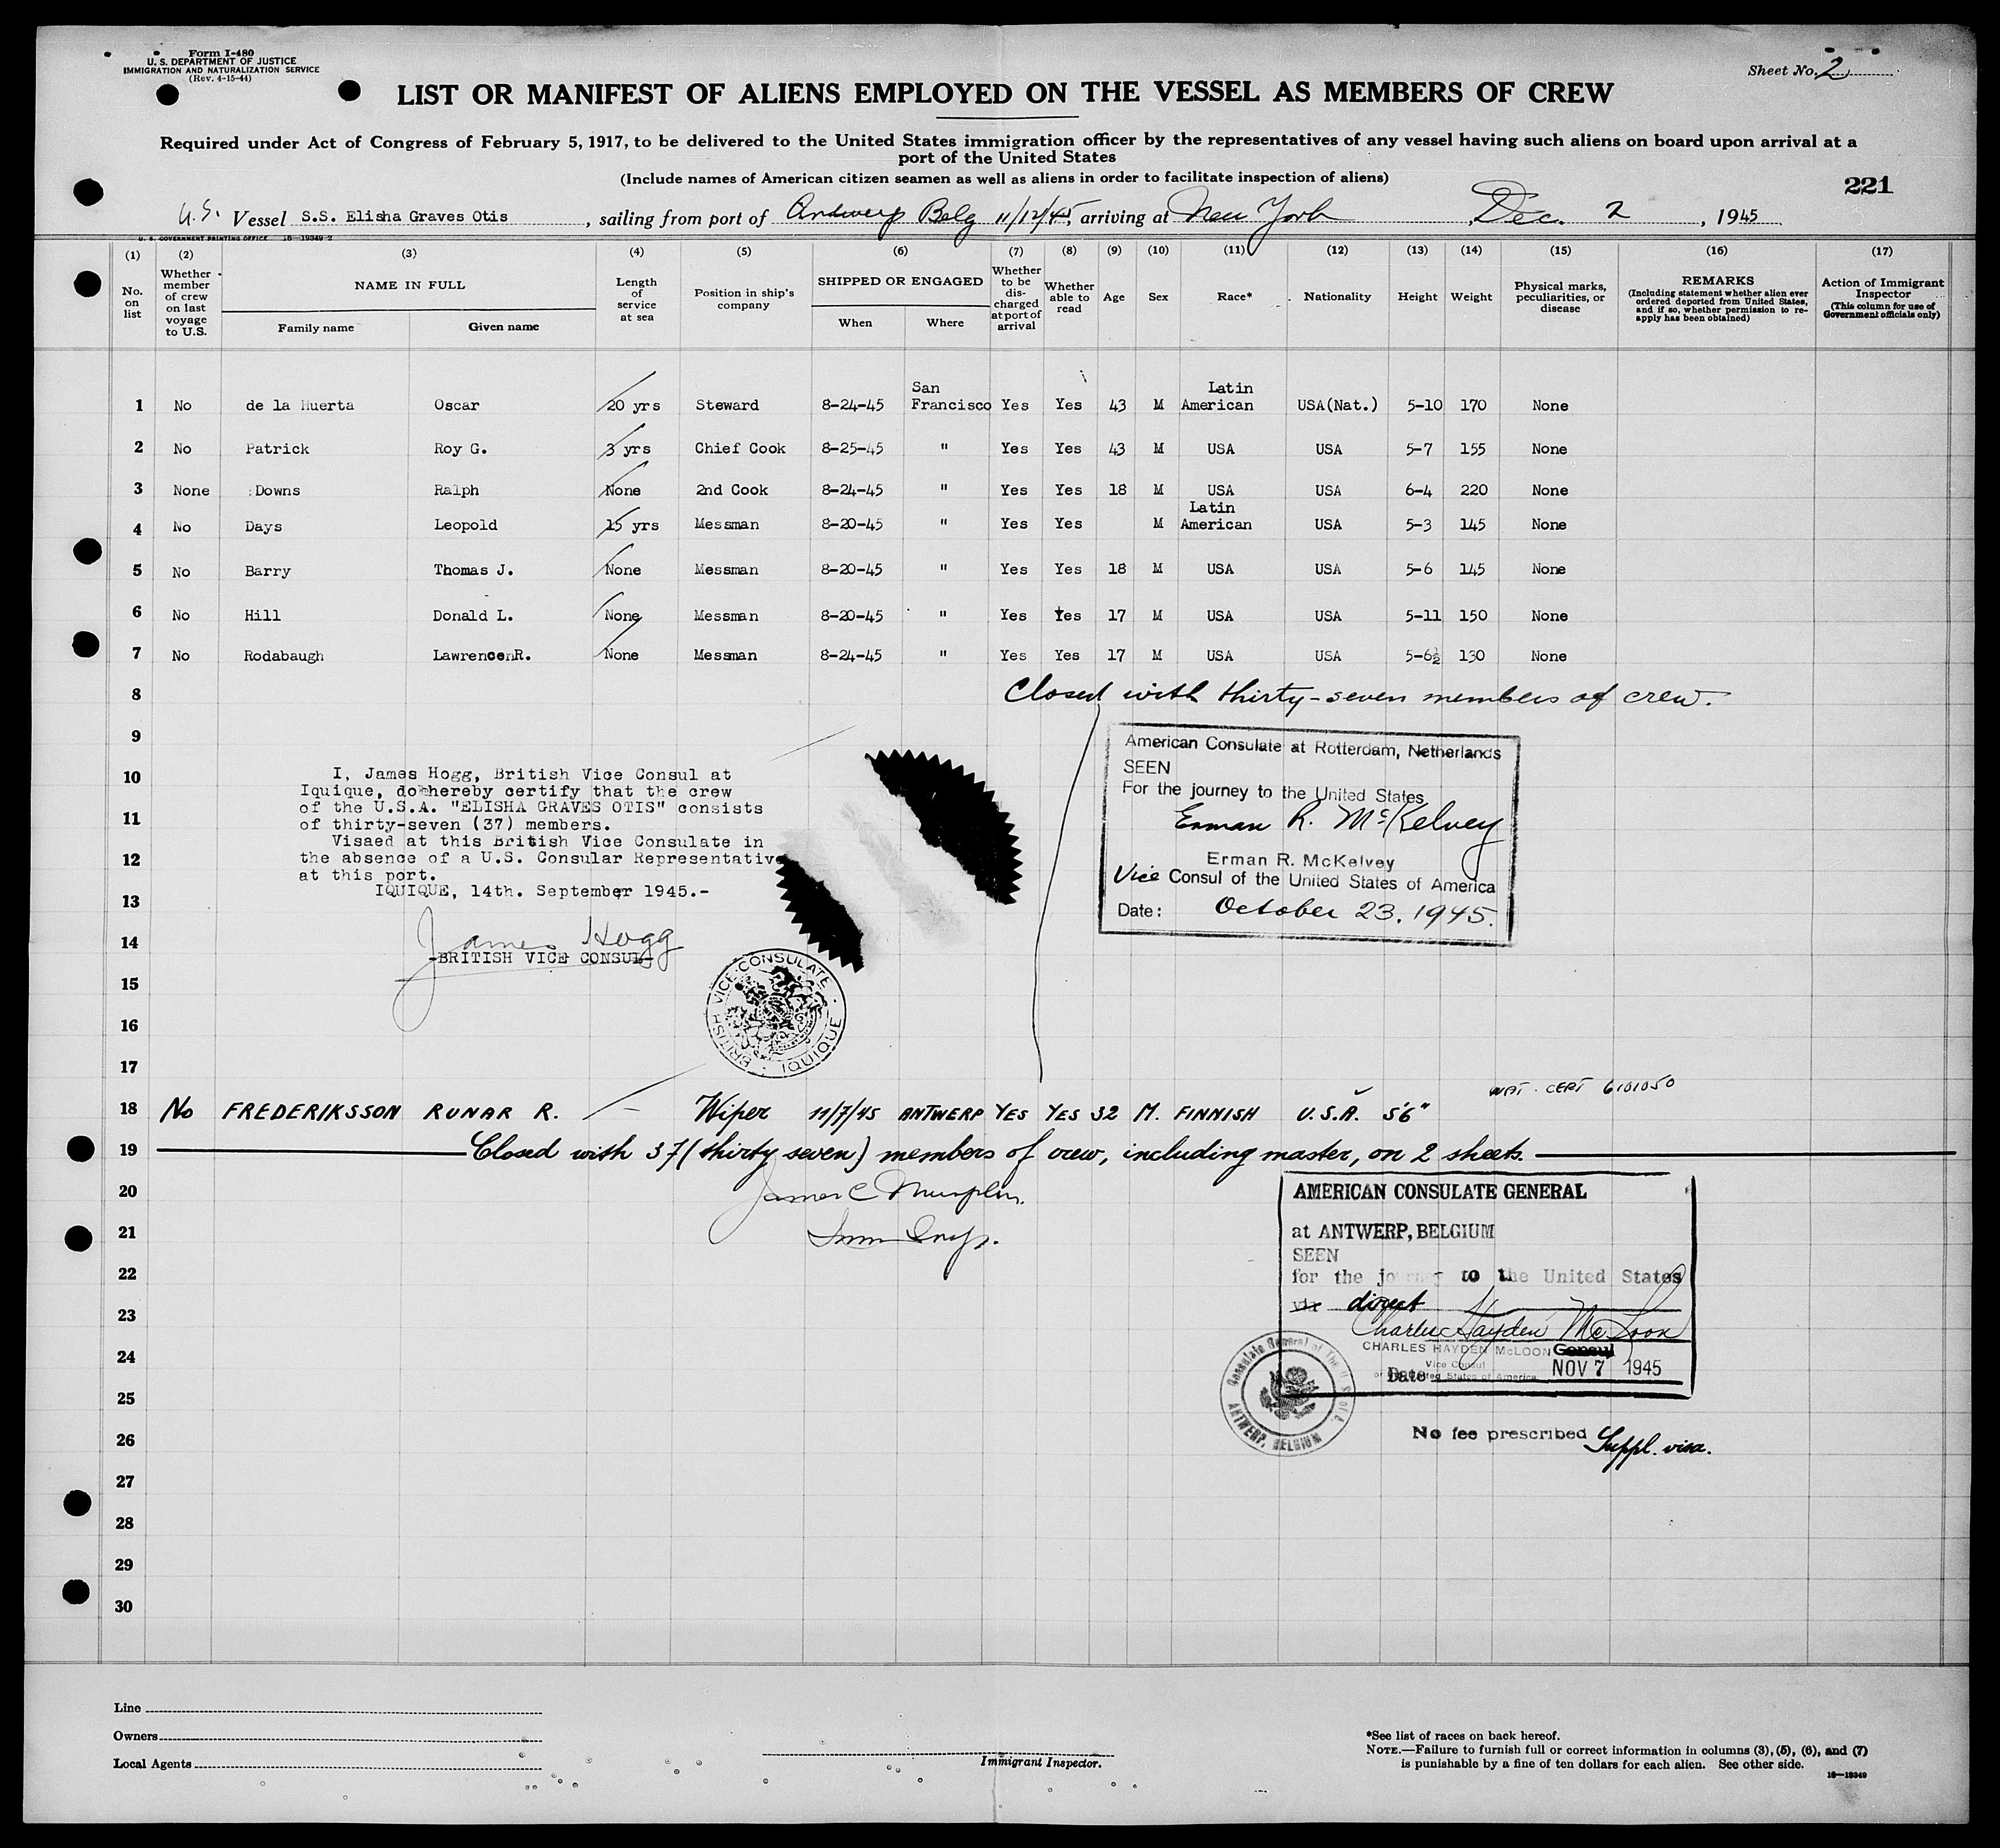 Form I-480
U. S. DEPARTMENT OF JUSTICE
IMMIGRATION AND NATURALIZATION SERVICE
(Rev. 4-15-44)
Sheet No. 2
LIST OR MANIFEST OF ALIENS EMPLOYED ON THE VESSEL AS MEMBERS OF CREW
Required under Act of Congress of February 5, 1917, to be delivered to the United States immigration officer by the representatives of any vessel having such aliens on board upon arrival at a
port of the United States
(Include names of American citizen seamen as well as aliens in order to facilitate inspection of aliens)
221
U.S. Vessel S.S. Elisha Graves Otis, sailing from port of Antwerp Belg 11/12/45, arriving at New York, Dec. 2, 1945
U. S. GOVERNMENT PRINTING OFFICE 16-19349-2
(1) (2) (3) (4) (5) (6) (7) (8) (9) (10) (11) (12) (13) (14) (15) (16) (17)
No. on list
Whether member of crew on last voyage to U.S.
NAME IN FULL
Family name
Given name
Length of service at sea
Position in ship's company
SHIPPED OR ENGAGED
When
Where
Whether to be discharged at port of arrival
Whether able to read
Age
Sex
Race*
Nationality
Height
Weight
Physical marks, peculiarities, or disease
REMARKS
(Including statement whether alien ever ordered deported from United States, and if so, whether permission to re-apply has been obtained)
Action of Immigrant Inspector
(This column for use of Government officials only)
1 No de la Huerta Oscar 20 yrs Steward 8-24-45 San Francisco Yes Yes 43 M Latin American USA(Nat.) 5-10 170 None
2 No Patrick Roy G. 3 yrs Chief Cook 8-25-45 " Yes Yes 43 M USA USA 5-7 155 None
3 None Downs Ralph None 2nd Cook 8-24-45 " Yes Yes 18 M USA USA 6-4 220 None
4 No Days Leopold 15 yrs Messman 8-20-45 " Yes Yes M Latin American USA 5-3 145 None
5 No Barry Thomas J. None Messman 8-20-45 " Yes Yes 18 M USA USA 5-6 145 None
6 No Hill Donald L. None Messman 8-20-45 " Yes Yes 17 M USA USA 5-11 150 None
7 No Rodabaugh Lawrence R. None Messman 8-24-45 " Yes Yes 17 M USA USA 5-6½ 130 None
8 Closed with thirty-seven members of crew.
9
10
11
12
13
14
15
16
17
I, James Hogg, British Vice Consul at
Iquique, do hereby certify that the crew
of the U.S.A. "ELISHA GRAVES OTIS" consists
of thirty-seven (37) members.
Visaed at this British Vice Consulate in
the absence of a U.S. Consular Representative
at this port.
IQUIQUE, 14th. September 1945.-
James Hogg
-BRITISH VICE CONSUL-
BRITISH VICE-CONSULATE · IQUIQUE ·
American Consulate at Rotterdam, Netherlands
SEEN
For the journey to the United States
Erman R. McKelvey
Erman R. McKelvey
Vice Consul of the United States of America
Date: October 23. 1945.
NAT. CERT 6101050
18 No FREDERIKSSON RUNAR R. — Wiper 11/7/45 ANTWERP YES YES 32 M. FINNISH U.S.A. 5'6"
19 Closed with 37 (thirty seven) members of crew, including master, on 2 sheets.
20
21
22
23
24
25
26
27
28
29
30
James C
Imm Insp.
AMERICAN CONSULATE GENERAL
at ANTWERP, BELGIUM
SEEN
for the journey to the United States
via direct
Charles Hayden McLoon
CHARLES HAYDEN McLOON Consul
Vice Consul
of the United States of America
Date NOV 7 1945
Consulate General of The U. S. of A.
ANTWERP, BELGIUM
No fee prescribed Suppl. visa.
Line
Owners
Local Agents
Immigrant Inspector.
*See list of races on back hereof.
NOTE.—Failure to furnish full or correct information in columns (3), (5), (6), and (7)
is punishable by a fine of ten dollars for each alien. See other side.
16—19349